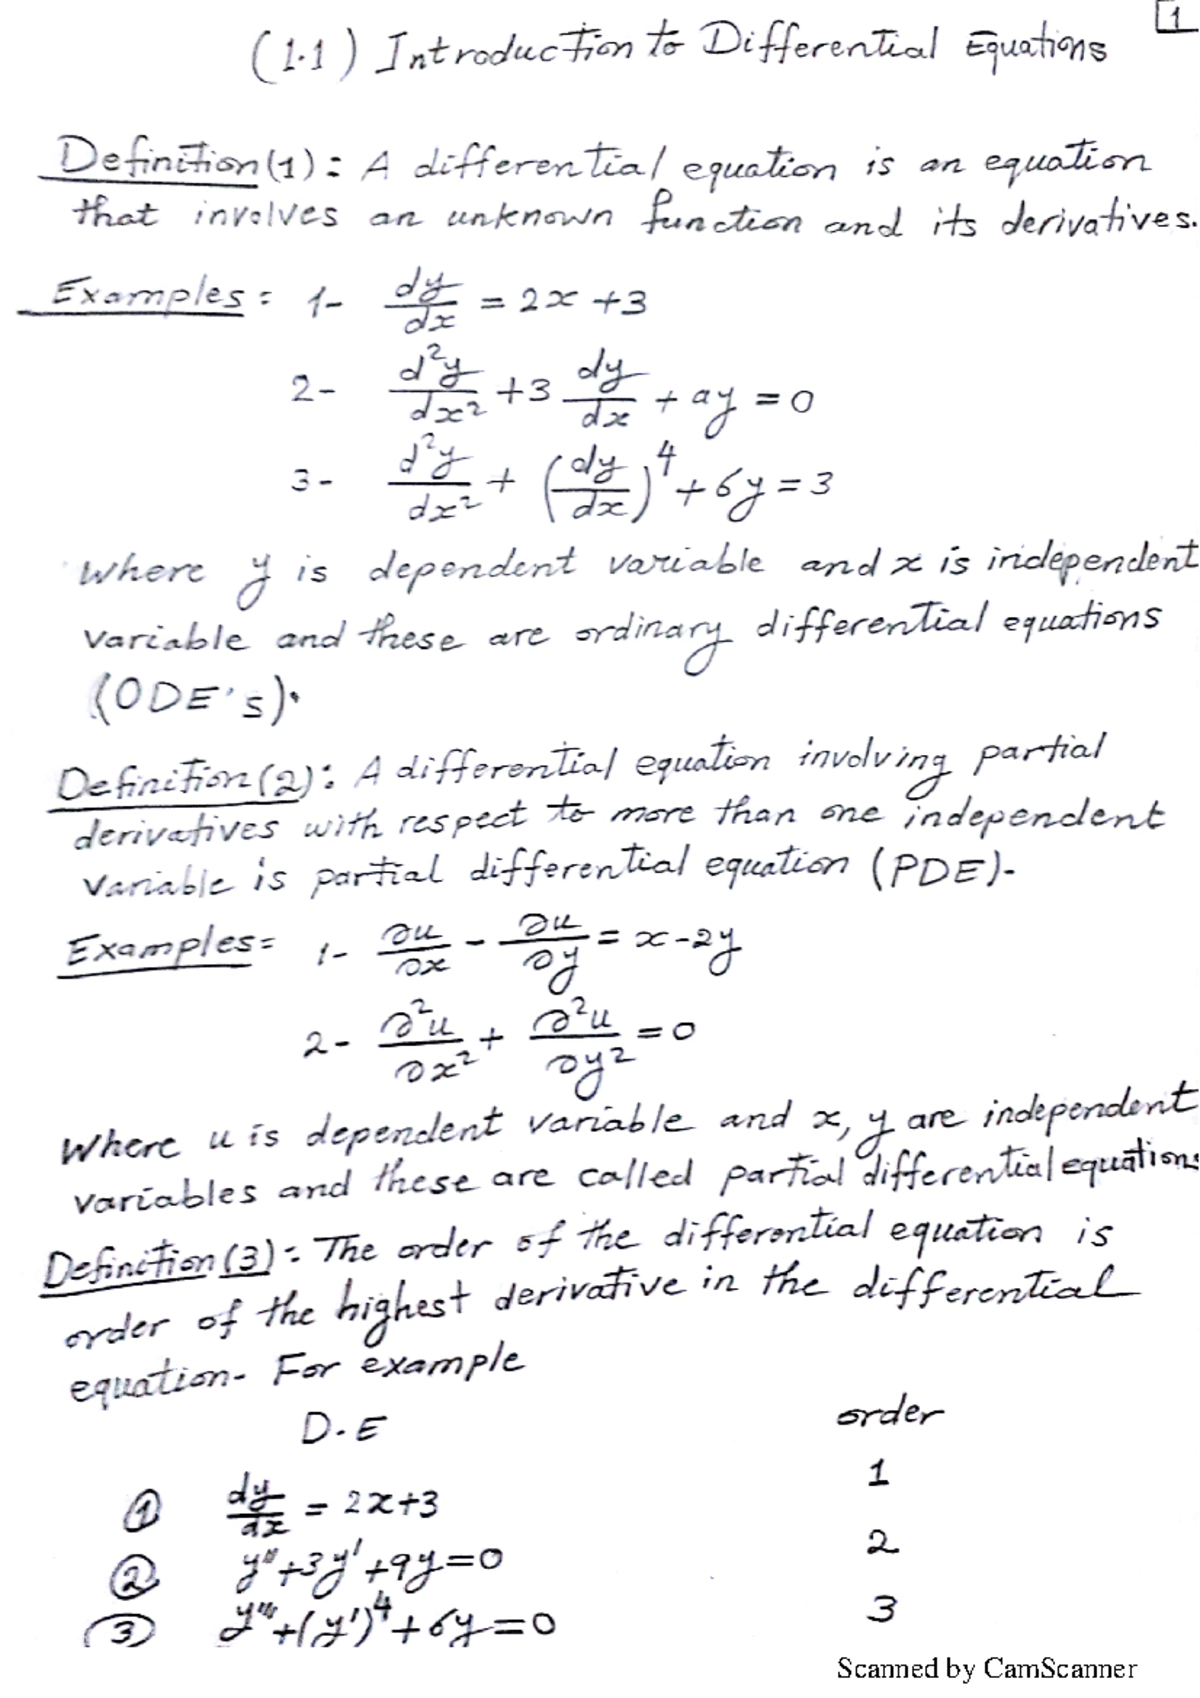 1
(1.1) Introduction to Differential Equations
Definition(1): A differential equation is an equation
that involves an unknown function and its derivatives.
Examples: 1- dy/dx = 2x + 3
2- d²y/dx² + 3 dy/dx + ay = 0
3- d²y/dx² + (dy/dx)⁴ + 6y = 3
Where y is dependent variable and x is independent
variable and these are ordinary differential equations
(ODE's).
Definition(2): A differential equation involving partial
derivatives with respect to more than one independent
variable is partial differential equation (PDE).
Examples: 1- ∂u/∂x - ∂u/∂y = x - 2y
2- ∂²u/∂x² + ∂²u/∂y² = 0
Where u is dependent variable and x, y are independent
variables and these are called partial differential equations
Definition(3): The order of the differential equation is
order of the highest derivative in the differential
equation. For example
D.E order
① dy/dx = 2x+3 1
② y'' + 3y' + 9y = 0 2
③ y''' + (y')⁴ + 6y = 0 3
Scanned by CamScanner